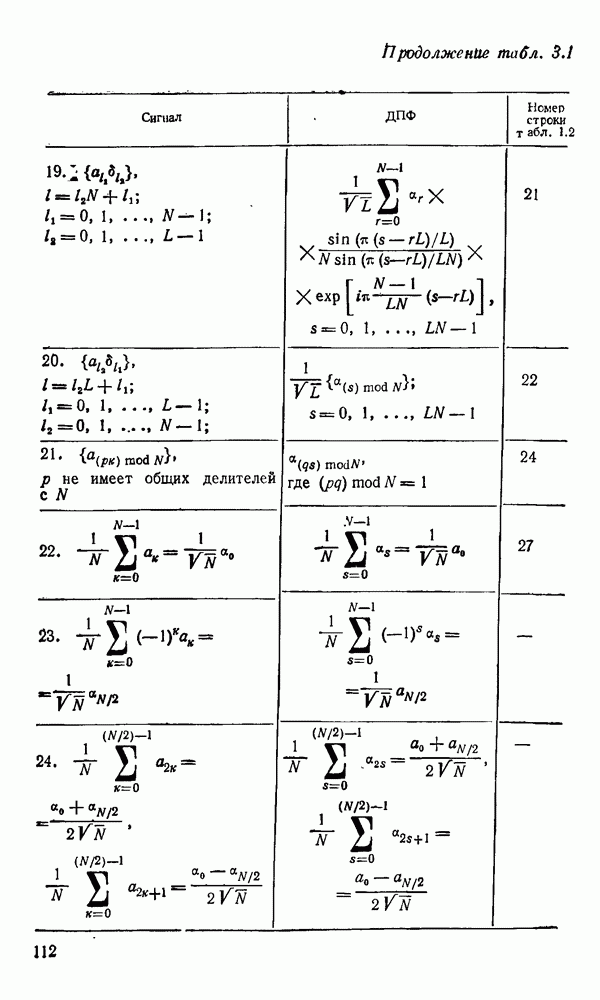 Продолжение табл. 3.1
Сигнал | ДПФ | Номер строки табл. 1.2
19. {a_{l₁}δ_{l₂}},
l = l₂N + l₁;
l₁ = 0, 1, ..., N — 1;
l₂ = 0, 1, ..., L — 1
1/√L ∑_{r=0}^{N—1} α_r ×
× sin (π (s — rL)/L) / N sin (π (s—rL)/LN) ×
× exp [iπ (N — 1)/LN (s—rL)],
s = 0, 1, ..., LN — 1
21
20. {a_{l₂}δ_{l₁}},
l = l₂L + l₁;
l₁ = 0, 1, ..., L — 1;
l₂ = 0, 1, ..., N — 1;
1/√L {α_{(s) mod N}};
s = 0, 1, ..., LN — 1
22
21. {a_{(pк) mod N}},
p не имеет общих делителей
с N
α_{(qs) mod N},
где (pq) mod N = 1
24
22. 1/N ∑_{к=0}^{N—1} a_к = 1/√N α₀
1/N ∑_{s=0}^{N—1} α_s = 1/√N a₀
27
23. 1/N ∑_{к=0}^{N—1} (—1)^к a_к =
= 1/√N α_{N/2}
1/N ∑_{s=0}^{N—1} (—1)^s α_s =
= 1/√N a_{N/2}
—
24. 1/N ∑_{к=0}^{(N/2)—1} a_{2к} =
= (α₀ + α_{N/2}) / 2√N,
1/N ∑_{к=0}^{(N/2)—1} a_{2к+1} = (α₀ — α_{N/2}) / 2√N
1/N ∑_{s=0}^{(N/2)—1} α_{2s} = (a₀ + a_{N/2}) / 2√N,
1/N ∑_{s=0}^{(N/2)—1} α_{2s+1} =
= (a₀ — a_{N/2}) / 2√N
—
112